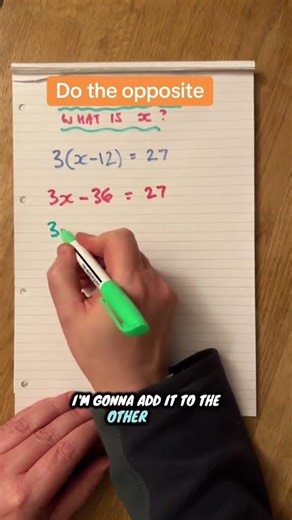 Do the opposite
WHAT IS x?
3(x-12) = 27
3x - 36 = 27
3
I'M GONNA ADD IT TO THE
OTHER